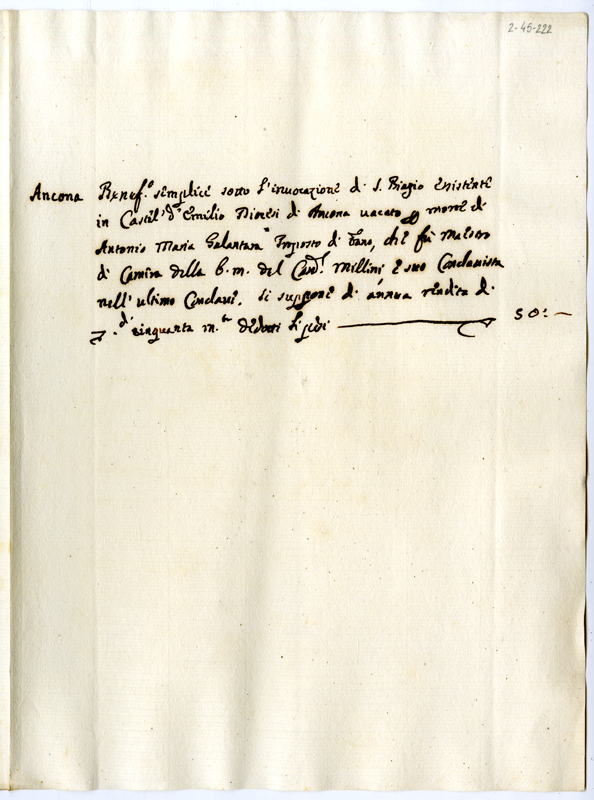 2-45-222
Ancona Benef.o semplice sotto l'invocazione di S. Biagio esistente
in Castel d'Emilio Diocesi di Ancona vacato per morte di
Antonio Maria Galantara Proposto di Fano, che fù Maestro
di Camera della b. m. del Card.l Millini e suo Conclavista
nell'ultimo Conclave. Si suppone di annua rendita di
cinquanta m.ta dedotti li pesi 50: —